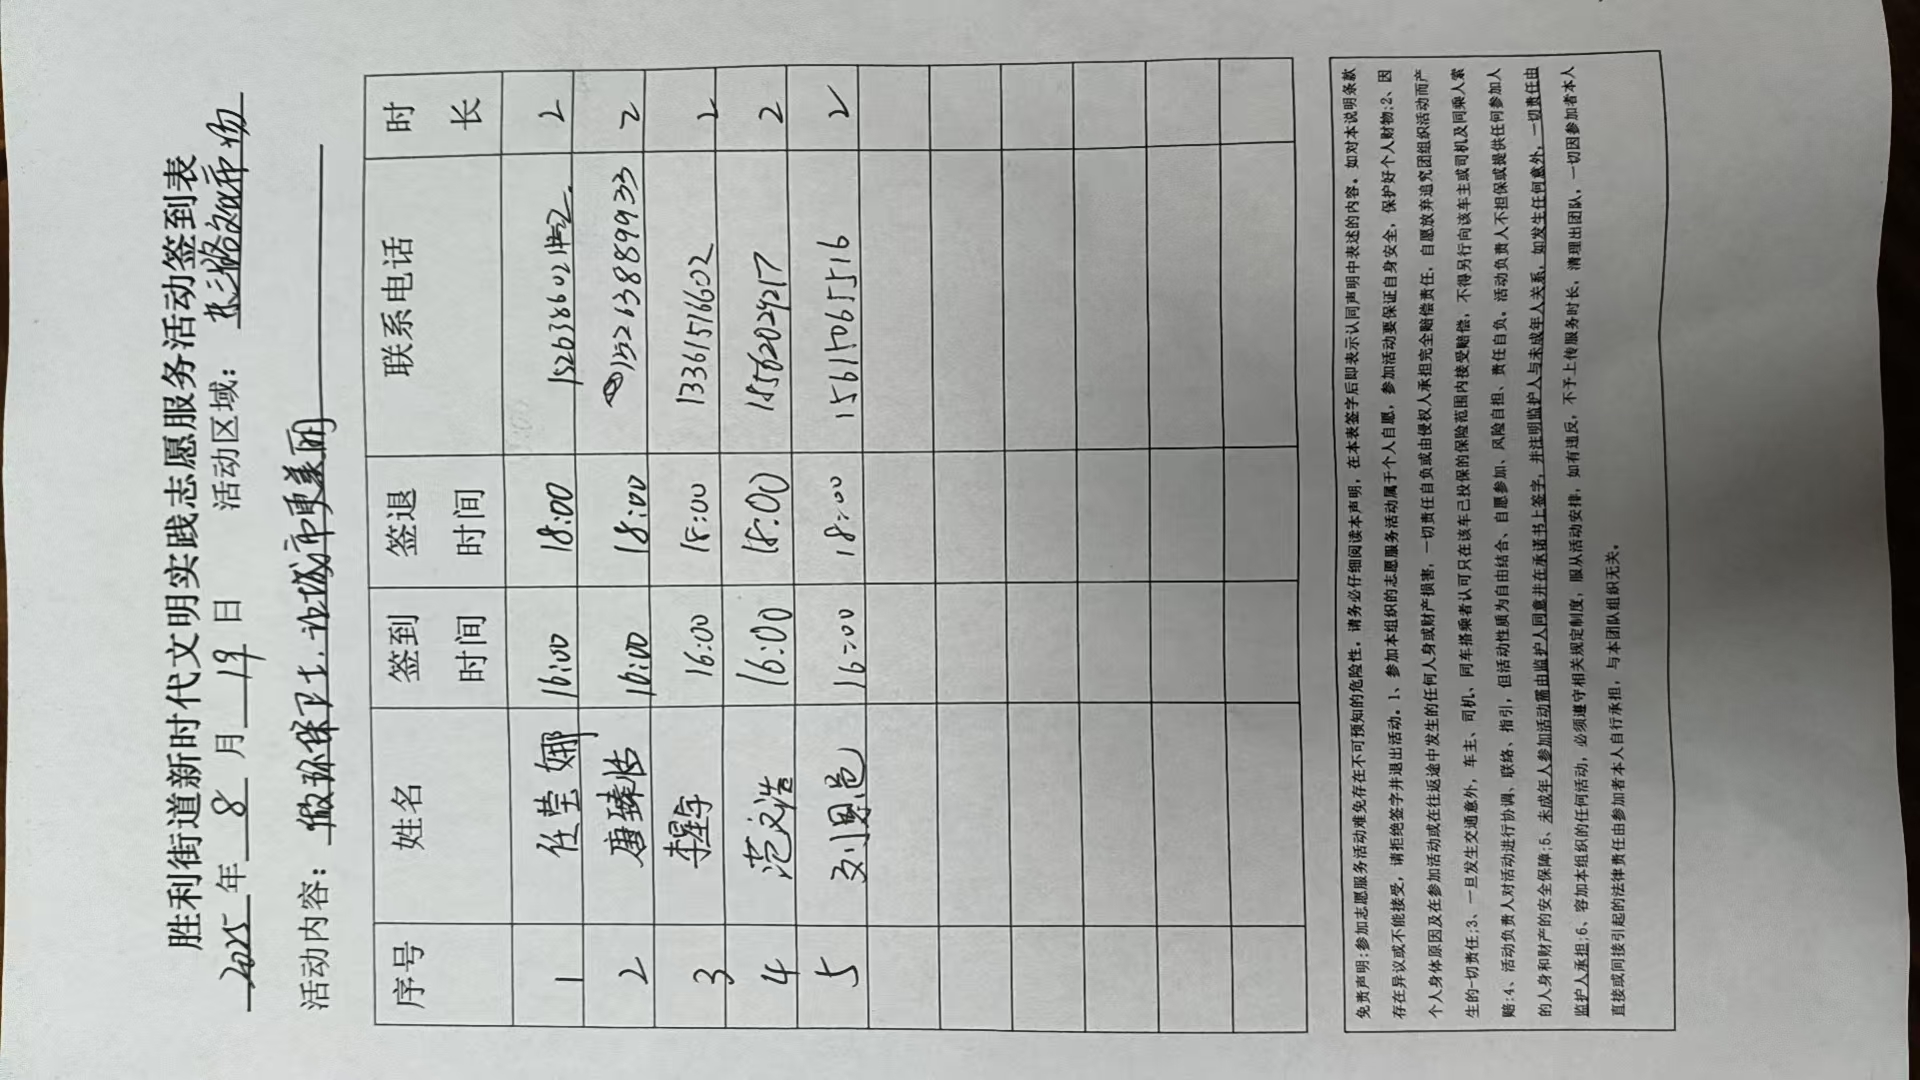 胜利街道新时代文明实践志愿服务活动签到表
2025年 8 月 19 日 活动区域:
活动内容: 做环保卫士,让城市更美丽
序号 姓名 签到时间 签退时间 联系电话 时长
1 任莹娜 16:00 18:00 2
2 唐臻浩 16:00 18:00 15263889933 2
3 李星宇 16:00 18:00 13361516602 2
4 范文浩 16:00 18:00 18562029217 2
5 刘恩邑 16:00 18:00 15615065516 2
免责声明:参加志愿服务活动难免存在不可预知的危险性,请务必仔细阅读本声明,在本表签字后即表示认同声明中表述的内容。如对本说明条款
存在异议或不能接受,请拒绝签字并退出活动。1、参加本组织的志愿服务活动属于个人自愿,参加活动要保证自身安全,保护好个人财物;2、因
个人身体原因及在参加活动或在往返途中发生的任何人身或财产损害,一切责任自负或由侵权人承担完全赔偿责任,自愿放弃追究团组织活动而产
生的一切责任;3、一旦发生交通意外,车主、司机、同车搭乘者认可只在该车已投保的保险范围内接受赔偿,不得另行向该车主或司机及同乘人索
赔;4、活动负责人对活动进行协调、联络、指引,但活动性质为自由结合、自愿参加、风险自担、责任自负。活动负责人不担保或提供任何参加人
的人身和财产的安全保障;5、未成年人参加活动需由监护人同意并在承诺书上签字,并注明监护人与未成年人关系,如发生任何意外,一切责任由
监护人承担;6、容加本组织的任何活动,必须遵守相关规定制度,服从活动安排,如有违反,不予上传服务时长,清理出团队,一切因参加者本人
直接或间接引起的法律责任由参加者本人自行承担,与本团队组织无关。